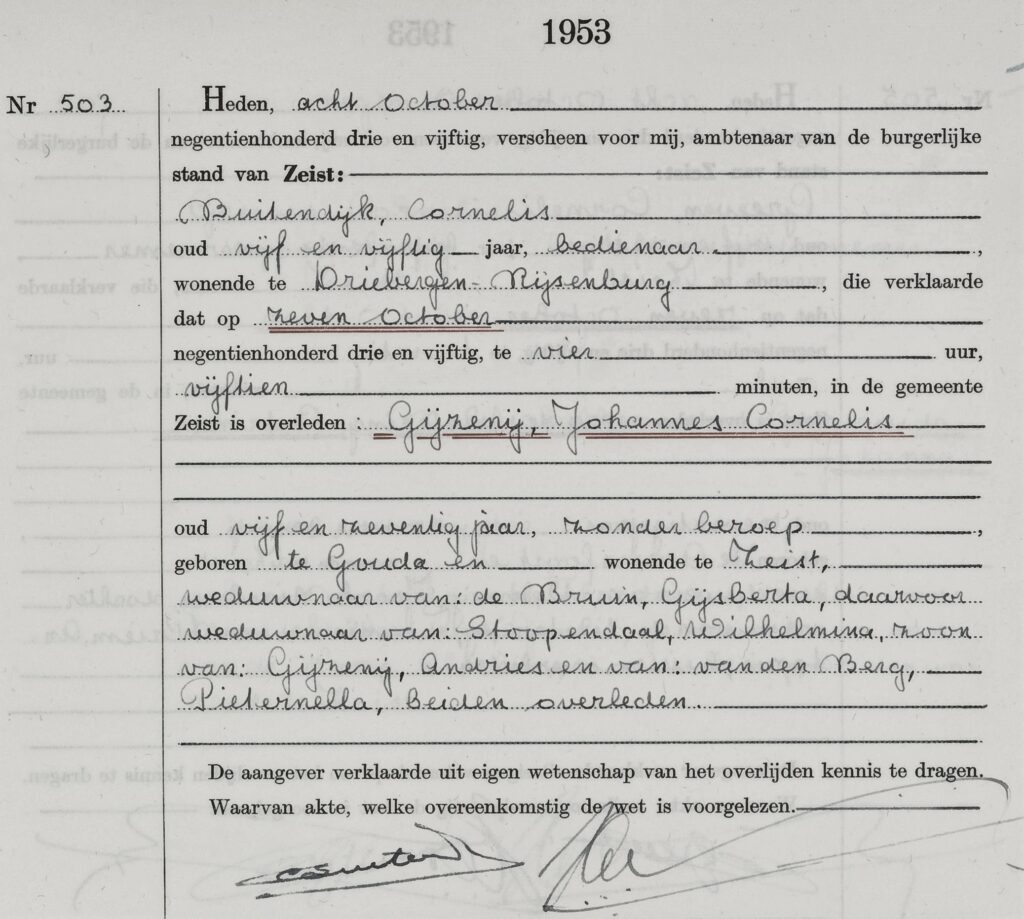 1953
Nr 503
Heden, acht October
negentienhonderd drie en vijftig, verscheen voor mij, ambtenaar van de burgerlijke
stand van Zeist:
Buitendijk, Cornelis
oud vijf en vijftig jaar, bedienaar ,
wonende te Driebergen-Rijsenburg , die verklaarde
dat op zeven October
negentienhonderd drie en vijftig, te vier uur,
vijftien minuten, in de gemeente
Zeist is overleden : Gijzenij, Johannes Cornelis
oud vijf en zeventig jaar, zonder beroep ,
geboren te Gouda en wonende te Zeist,
weduwnaar van: de Bruin, Gijsberta, daarvoor
weduwnaar van: Stoopendaal, Wilhelmina, zoon
van: Gijzenij, Andries en van: van den Berg,
Pieternella, beiden overleden.
De aangever verklaarde uit eigen wetenschap van het overlijden kennis te dragen.
Waarvan akte, welke overeenkomstig de wet is voorgelezen.